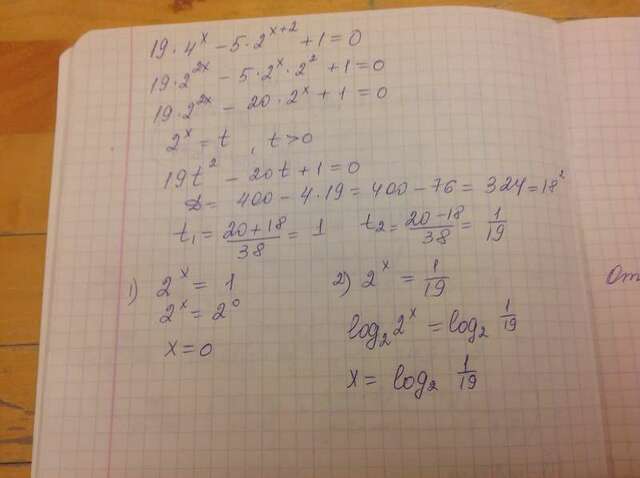 19 · 4^x − 5 · 2^{x+2} + 1 = 0
19 · 2^{2x} − 5 · 2^x · 2^2 + 1 = 0
19 · 2^{2x} − 20 · 2^x + 1 = 0
2^x = t , t > 0
19t^2 − 20t + 1 = 0
D = 400 − 4 · 19 = 400 − 76 = 324 = 18^2
t₁ = (20+18)/38 = 1 t₂ = (20−18)/38 = 1/19
1) 2^x = 1
2^x = 2^0
x = 0
2) 2^x = 1/19
log₂ 2^x = log₂ 1/19
x = log₂ 1/19
От